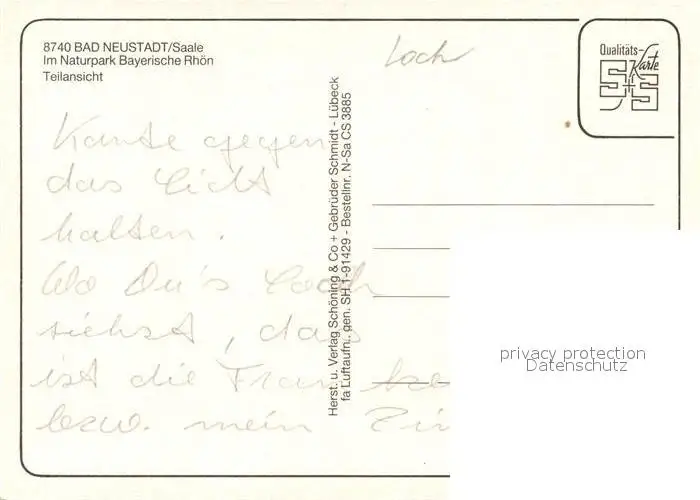 8740 BAD NEUSTADT/Saale
Im Naturpark Bayerische Rhön
Teilansicht
Loch
Qualitäts-
Karte
Karte gegen
das Licht
halten.
Wo Du's Loch
siehst, das
ist die
bzw. mein
Herst. u. Verlag Schöning & Co + Gebrüder Schmidt - Lübeck
fa Luftaufn. gen. SH 1-91429 - Bestellnr. N-Sa CS 3885
privacy protection
Datenschutz